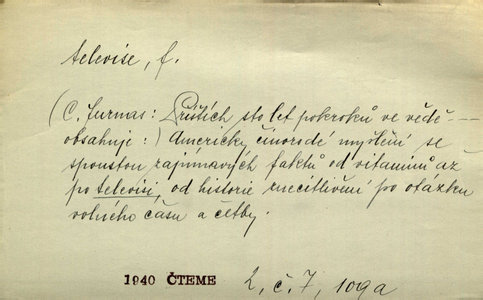 televise, f.
(C. Furnas: Příštích sto let pokroků ve vědě ---
obsahuje:) Americky činorodé myšlení se
spoustou zajímavých faktů od vitaminů až
po televisi, od historie znecitlivění po otázku
volného času a četby.
1940 ČTEME 2, č. 7, 109a